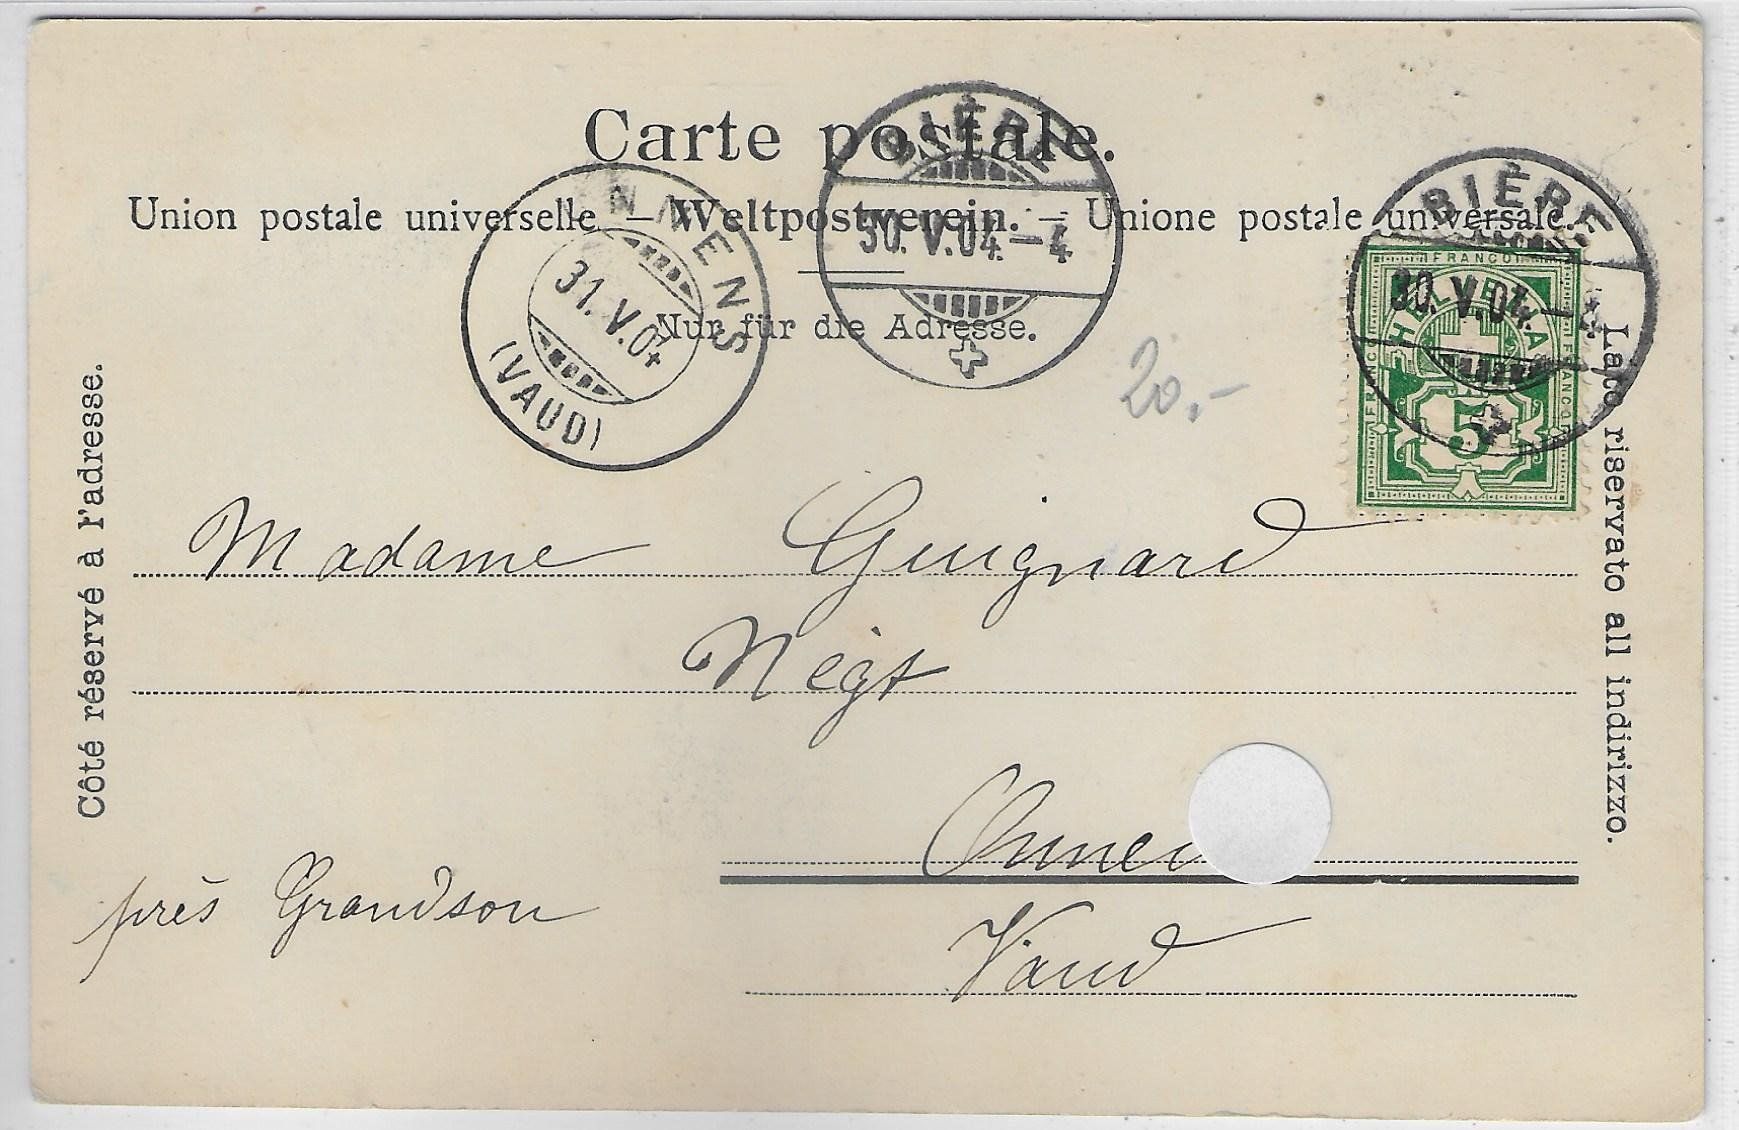 Carte postale.
Union postale universelle. — Weltpostverein. — Unione postale universale.
Nur für die Adresse.
Côté réservé à l'adresse.
Lato riservato all indirizzo.
BIÈRE
30. V. 04. — 4
BIÈRE
30. V. 04.
NNENS
31. V. 04
(VAUD)
FRANCO
FRANCO
FRANCO
HELVETIA
5
20.-
Madame Guignard
Négt
Onnen
Vaud
près Grandson